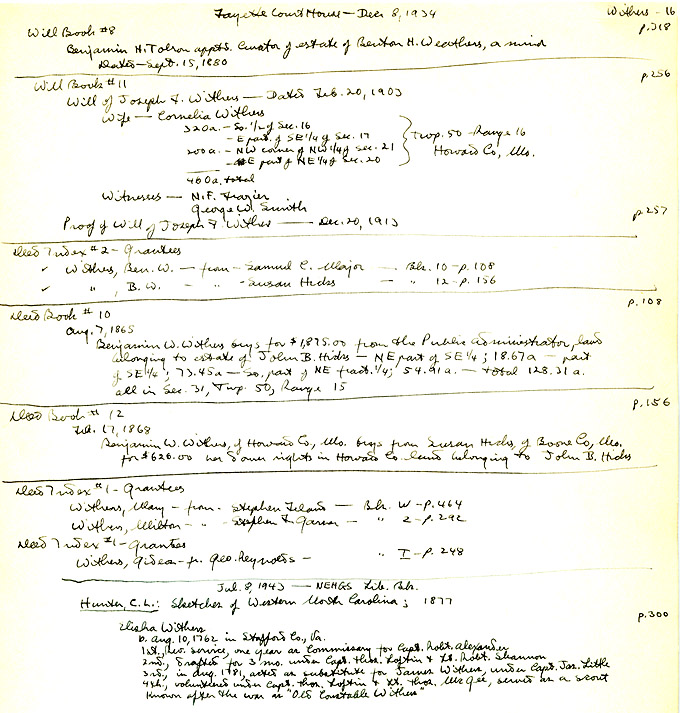 Fayette Court House — Dec. 8, 1934
Withers - 16
Will Book #8
p.318
Benjamin N. Tolson appts. Curator of estate of Benton H. Weathers, a minor
Dated — Sept. 15, 1880
Will Book #11
p.256
Will of Joseph F. Withers — Dated Feb. 20, 1903
Wife — Cornelia Withers
320a. — So. 1/2 of Sec. 16
— E part of SE 1/4 of Sec. 17
200a. — NW corner of NW 1/4 of Sec. 21
— E part of NE 1/4 of Sec. 20
Twp. 50 - Range 16
Howard Co., Mo.
460a. total
Witnesses — N. F. Frazier
George W. Smith
p.257
Proof of Will of Joseph F. Withers — Dec. 20, 1913
Deed Index #2 - Grantees
✓ Withers, Ben. W. — from — Samuel C. Major — Bk. 10 - p.108
✓ " , B. W. - " - Susan Hicks — " 12 - p.156
Deed Book #10
p.108
Aug. 7, 1865
Benjamin W. Withers buys for $1,875.00 from the Public Administrator, land
belonging to estate of John B. Hicks — NE part of SE 1/4; 18.67a — part
of SE 1/4; 73.45a — So. part of NE fract. 1/4; 54.91a. — total 128.31a.
all in Sec. 31, Twp. 50, Range 15
Deed Book #12
p.156
Feb. 17, 1868
Benjamin W. Withers, of Howard Co., Mo. buys from Susan Hicks, of Boone Co., Mo.
for $620.00 her dower rights in Howard Co. land belonging to John B. Hicks
Deed Index #1 - Grantees
Withers, Mary - from - Stephen — Bk. W - p.464
Withers, Milton - " - Stephen — " 2 - p.292
Deed Index #1 - Grantees
Withers, Gideon - fr. Geo. Reynolds — " I - p.248
Jul. 8, 1943 — NEHGS Lib. Bk.
Hunter, C. L.: Sketches of Western North Carolina; 1877
p.300
Elisha Withers
b. Aug. 10, 1762 in Stafford Co., Va.
1st, Rev. service, one year as Commissary for Capt. Robt. Alexander
2nd, drafted for 3 mo. under Capt. Thos. Loftin & Lt. Robt. Shannon
3rd, in Aug. 1781, acted as substitute for James Withers, under Capt. Jas. Little
4th, volunteered under Capt. Thos. Loftin & Lt. Thos. McGee, served as a scout
Known after the war as "Old Constable Withers"